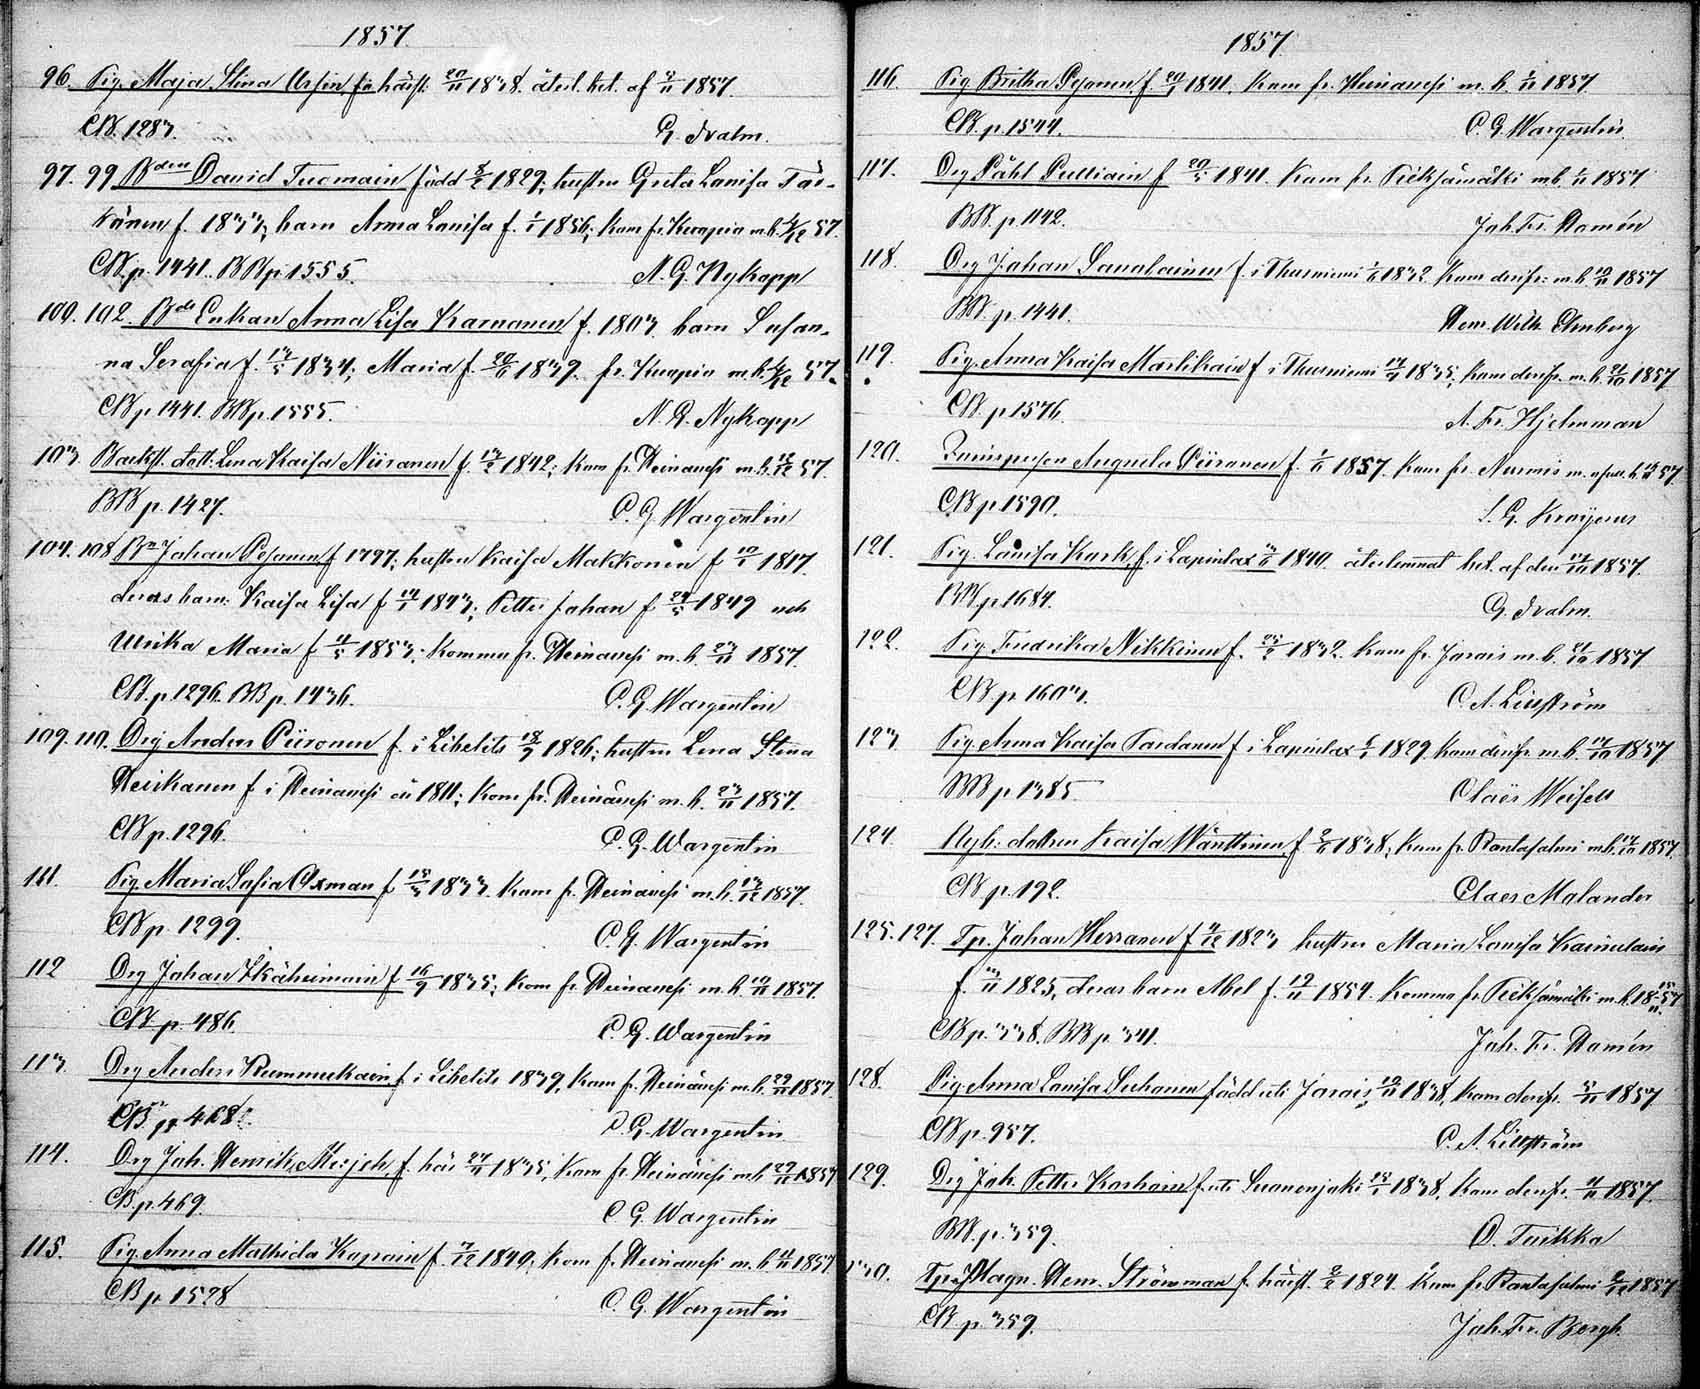 1857.
96. Pig. Maja Stina Ursin, f. härst. 20/11 1838. återl. bet. af 9/11 1857.
CB. 1283. G. Dralm.
97. 99 Bden David Tuomain född 8/2 1829; hustru Greta Lovisa Tar-
kånen f. 1833; barn Anna Lovisa f. 1/1 1856; kom fr. Kuopio m. b. 4/12 57.
CB p. 1441. BB p. 1555. N. G. Nykopp
100. 102. Bde Enkan Anna Lisa Karnanen f. 1803 barn Susan-
na Serafia f. 13/5 1834; Maria f. 20/6 1839. fr. Kuopio m. b. 4/12 57.
CB p. 1441. BB p. 1555. N. G. Nykopp
103. Backst. dott: Lena Kaisa Niiranen f. 13/2 1842; kom fr. Heinävesi m. b. 12/12 57.
BB p. 1427. C. G. Wargentin
104. 108 Bn Johan Pesonen f 1797; hustru Kaisa Makkonen f 10/1 1817.
deras barn: Kaisa Lisa f 14/1 1843; Petter Johan f 24/5 1849 och
Ulrika Maria f 11/5 1853; komma fr. Heinävesi m. b. 23/11 1857.
CB. p. 1296. BB p. 1436. C. G. Wargentin
109. 110. Drg Anders Piironen f. i Libelits 18/9 1826; hustru Lena Stina
Heiskanen f i Heinävesi år 1811; kom fr. Heinävesi m. b. 23/11 1857.
CB p. 1296. C. G. Wargentin
111. Pig. Maria Sofia Oxman f 18/3 1833. kom fr. Heinävesi m. b. 13/12 1857.
CB p. 1299. C. G. Wargentin
112 Drg Johan Ikäheimain f 16/9 1835; kom fr. Heinävesi m. b. 10/11 1857.
CB. p. 486. C. G. Wargentin
113 Drg Anders Rummukain f i Libelits 1839, kom fr. Heinävesi m. b. 29/11 1857.
CB p. 468. C. G. Wargentin
114. Drg Joh. Henrik f. här 27/11 1835, kom fr. Heinävesi m. b. 29/11 1857
CB. p. 469. C. G. Wargentin
115. Pig. Anna Mathida Kapain f. 3/12 1840, kom fr. Heinävesi m. b. 11/11 1857
CB p. 1528 C. G. Wargentin
1857
116. Pig Britha Pesonen f. 20/5 1841, kom fr. Heinävesi m. b. 1/11 1857.
CB. p. 1544. C. G. Wargentin
117. Drg Påhl Pulliain f 20/5 1841. kom fr. Pieksämäki m b. 1/11 1857
BB p. 1142. Joh. Fr. Ramén
118. Drg Johan Sawolainen f. i Thusniemi 1/6 1832 kom derifr: m. b. 10/11 1857
BB. p. 1441. Hem. Wilh. Ehnberg
119. Pig. Anna Kaisa Martikain f i Thusniemi 17/9 1835, kom derifr. m. b. 21/10 1857
CB. p. 1576. A. Fr. Hjelmman
120. Augusta Piiranen f. 1/11 1857. kom fr. Nurmis m. b. 57
CB p. 1590. L. G. Kroijerus
121. Pig. Lovisa Kurk, f. i Lapinlax 3/6 1840. återlemnat bet. af den 17/10 1857.
BB p. 1684. G. Dralm.
122. Pig. Fredrika Nikkinen f. 25/2 1832. kom fr. Jorois m. b. 21/10 1857
CB. p. 1603. C. A. Lillström
123 Pig. Anna Kaisa Tardanen f i Lapinlax 6/1 1829 kom derifr. m. b. 17/10 1857
BB p. 1385. Claës Weisell
124. Nyb: dottren Kaisa Wänttinen f 2/6 1838, kom fr. Rantasalmi m b. 17/10 1857.
CB p. 192. Claes Molander
125. 127. Tp. Johan Herranen f 9/12 1823 hustru Maria Lovisa Kainulain
f. 3/11 1825, deras barn Abel f. 19/11 1854. komma fr. Pieksämäki m. b. 15/11 1857
CB p. 338. BB p. 341. Joh. Fr. Ramén
128. Pig. Anna Lovisa Suhonen född uti Jorois 10/11 1838, kom derifr. 5/11 1857
CB p. 957. C. A. Lillström
129. Drg Joh. Petter Korhoin f uti Suonenjoki 25/1 1838, kom derifr. 11/11 1857.
BB. p. 359. O. Tuikka
130. Tp. Magn. Hem. Strömman f. härst. 2/2 1824. kom fr. Rantasalmi 2/12 1857
CB p. 359. Joh. Fr. Bergh.